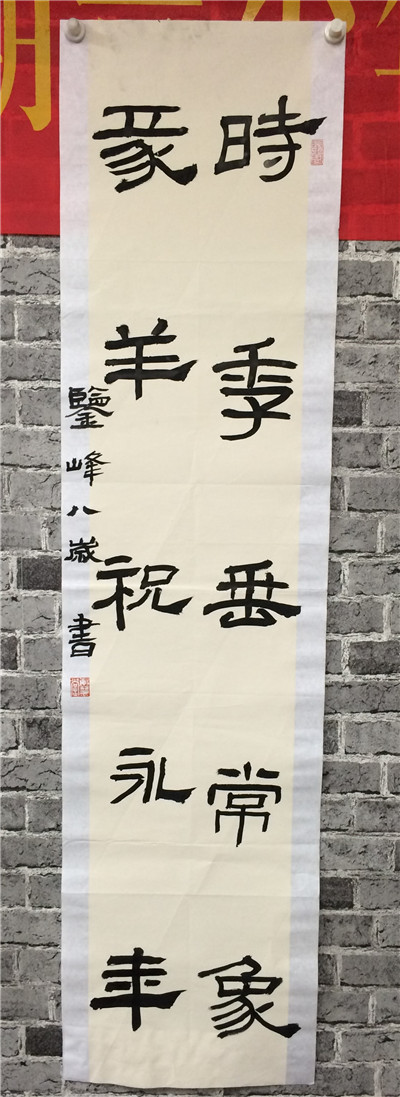 時季垂常象
羊祝永年
鑒峰八歲書